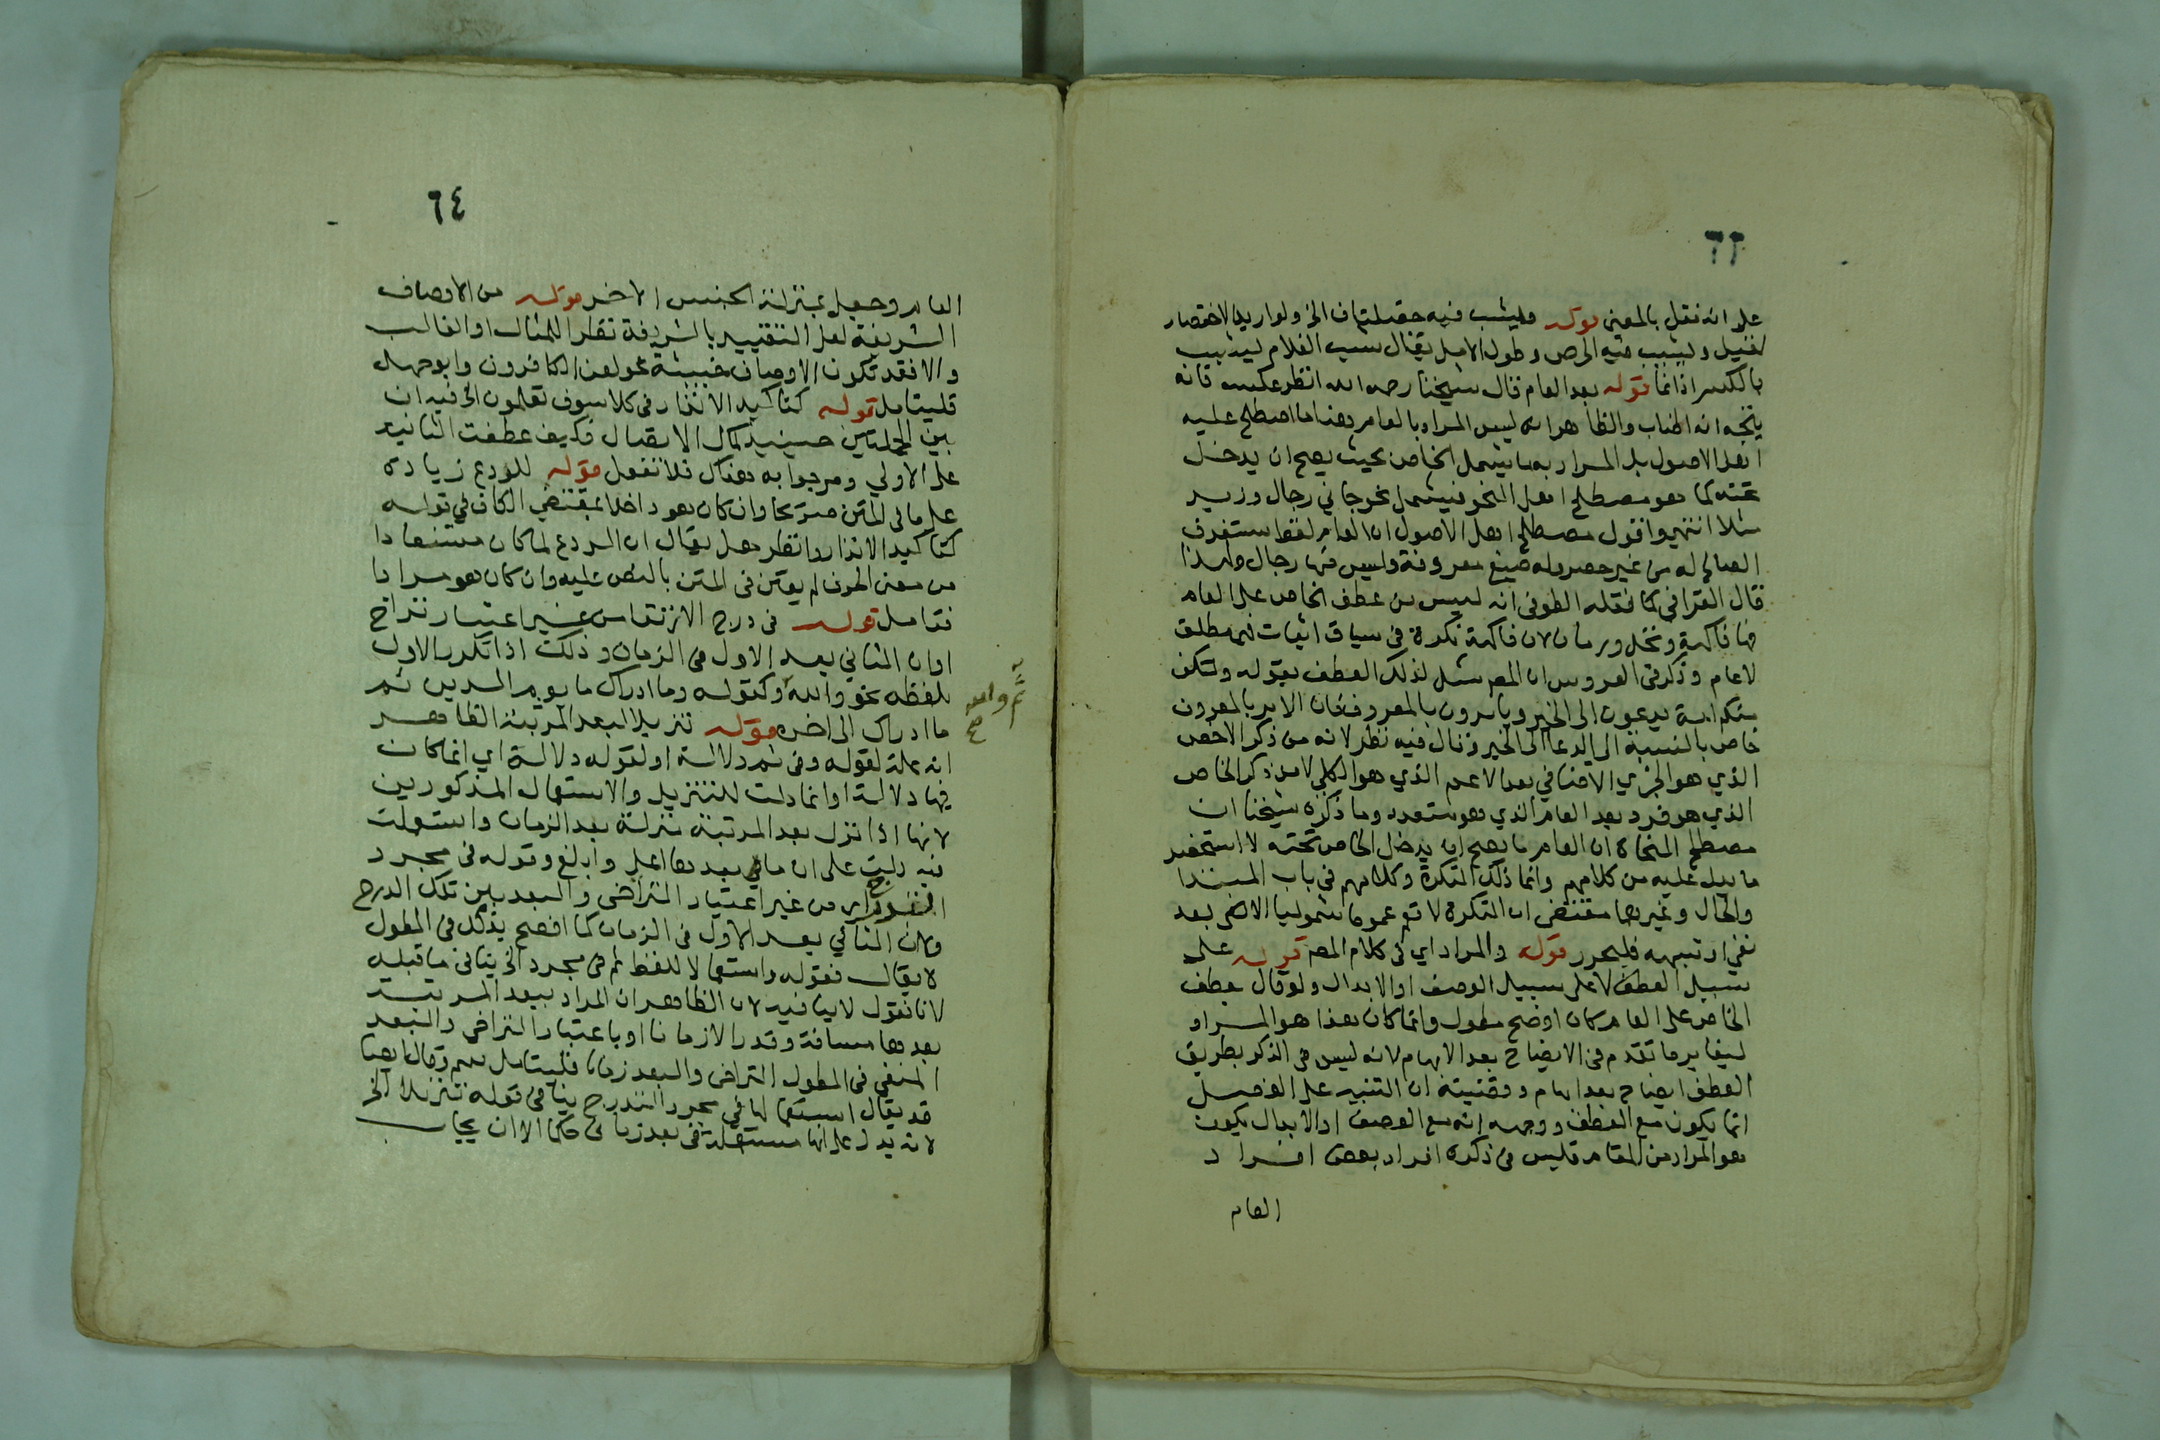 ٦٣
على انه نقل بالمعنى قوله وليشب فيه خصلتان الخ ولو اريد الاختصار
لقيل وليشب فيه الحرص وطول الامل يقال شب الغلام يشب
بالكسر اذا نما قوله بعد العام قال شيخنا رحمه الله انظر عكسه فانه
يتجه انه اطناب والظاهر انه ليس المراد بالعام هنا ما اصطلح عليه
اهل الاصول بل المراد به ما يشمل الخاص بحيث يصح ان يدخل
تحته كما هو مصطلح اهل النحو فيشمل نحو جاني رجال وزيد
مثلا انتهى واقول مصطلح اهل الاصول ان العام لفظ استغرق
الصالح له من غير حصر وله صيغ معروفة وليس فيها رجال ولهذا
قال القرافي كما نقله الطوفي انه ليس من عطف الخاص على العام
فيها فاكهة ونخل ورمان لان فاكهة نكرة في سياق اثبات فهي مطلق
لا عام وذكر في العروس ان المص مثل لذلك العطف بقوله ولتكن
منكم امة يدعون الى الخير ويامرون بالمعروف فان الامر بالمعروف
خاص بالنسبة الى الدعا الى الخير وقال فيه نظر لانه من ذكر الاخص
الذي هو الجزي الاضافي بعد الاعم الذي هو الكلي لا من ذكر الخاص
الذي هو فرد بعد العام الذي هو متعدد وما ذكره شيخنا ان
مصطلح النحاة ان العام ما يصح ان يدخل الخاص تحته لا استحضر
ما يدل عليه من كلامهم وانما ذلك النكرة وكلامهم في باب المبتدا
والحال وغيرهما مقتضى ان النكرة لا تعم عموما شموليا الا في بعد
نفي او شبهه فليحرر قوله والمراد اي في كلام المص قوله على
سبيل العطف لا على سبيل الوصف او الابدال ولو قال بعطف
الخاص على العام كان اوضح مطول وانما كان هذا هو المراد
ليغاير ما تقدم في الايضاح بعد الابهام لانه ليس في الذكر بطريق
العطف ايضاح بعد ابهام وقضيته ان التنبيه على الفضل
انما يكون مع العطف ووجهه انه مع الوصف او الابدال يكون
هو المراد من العام فليس في ذكره افراد بعض افراد
العام
٦٤
العام وجعل بمنزلة الجنس الاخر قوله من الاوصاف
الشريفة لعل التقييد بالشريفة نظرا للمثال او الغالب
والا فقد تكون الاوصاف خبيثة نحو لعن الكافرون وابو جهل
فليتامل قوله كتاكيد الانذار في كلا سوف تعلمون الخ فيه ان
بين الجملتين حينئذ كمال الاتصال فكيف عطفت الثانية
على الاولى ومر جوابه هناك فلا تغفل قوله للردع زيادة
على ما في المتن صريحا وان كان هو داخلا بمقتضى الكاف في قوله
كتاكيد الانذار وانظر هل يقال ان الردع لما كان مستفادا
من معنى الحرف لم يعتن في المتن بالنص عليه وان كان هو مرادا
فتامل قوله في درج الارتقا من غير اعتبار تراخ
او ان الثاني بعد الاول في الزمان وذلك اذا تكرر الاول
بلفظه نحو والله وكقوله وما ادراك ما يوم الدين ثم
ثم والله
صح
ما ادراك الى اخره قوله تنزيلا لبعد المرتبة الظاهر
انه علة لقوله وفي ثم دلالة او لقوله دلالة اي انما كان
فيها دلالة او انما دلت للتنزيل والاستعمال المذكورين
لانها اذا نزل بعد المرتبة منزلة بعد الزمان واستعملت
فيه دلت على ان ما في بعدها اعلى وابلغ وقوله في مجرد
التدرج اي من غير اعتبار التراخي والبعد بين تلك الدرج
وكان الثاني بعد الاول في الزمان كما افصح بذلك في المطول
لا يقال فقوله واستعمالا للفظ ثم في مجرد الخ ينافي ما قبله
لانا نقول لا ينافيه لان الظاهر ان المراد ببعد المرتبة
بعدها مسافة وقدرا لا زمانا او باعتبار التراخي والبعد
المنفي في المطول التراخي والبعد زمانا فليتامل سم وقال ايضا
قد يقال استعمالها في مجرد التدرج ينافي قوله تنزيلا الخ
لانه يدل على انها مستعملة في بعد زماني حكما الا ان يجاب